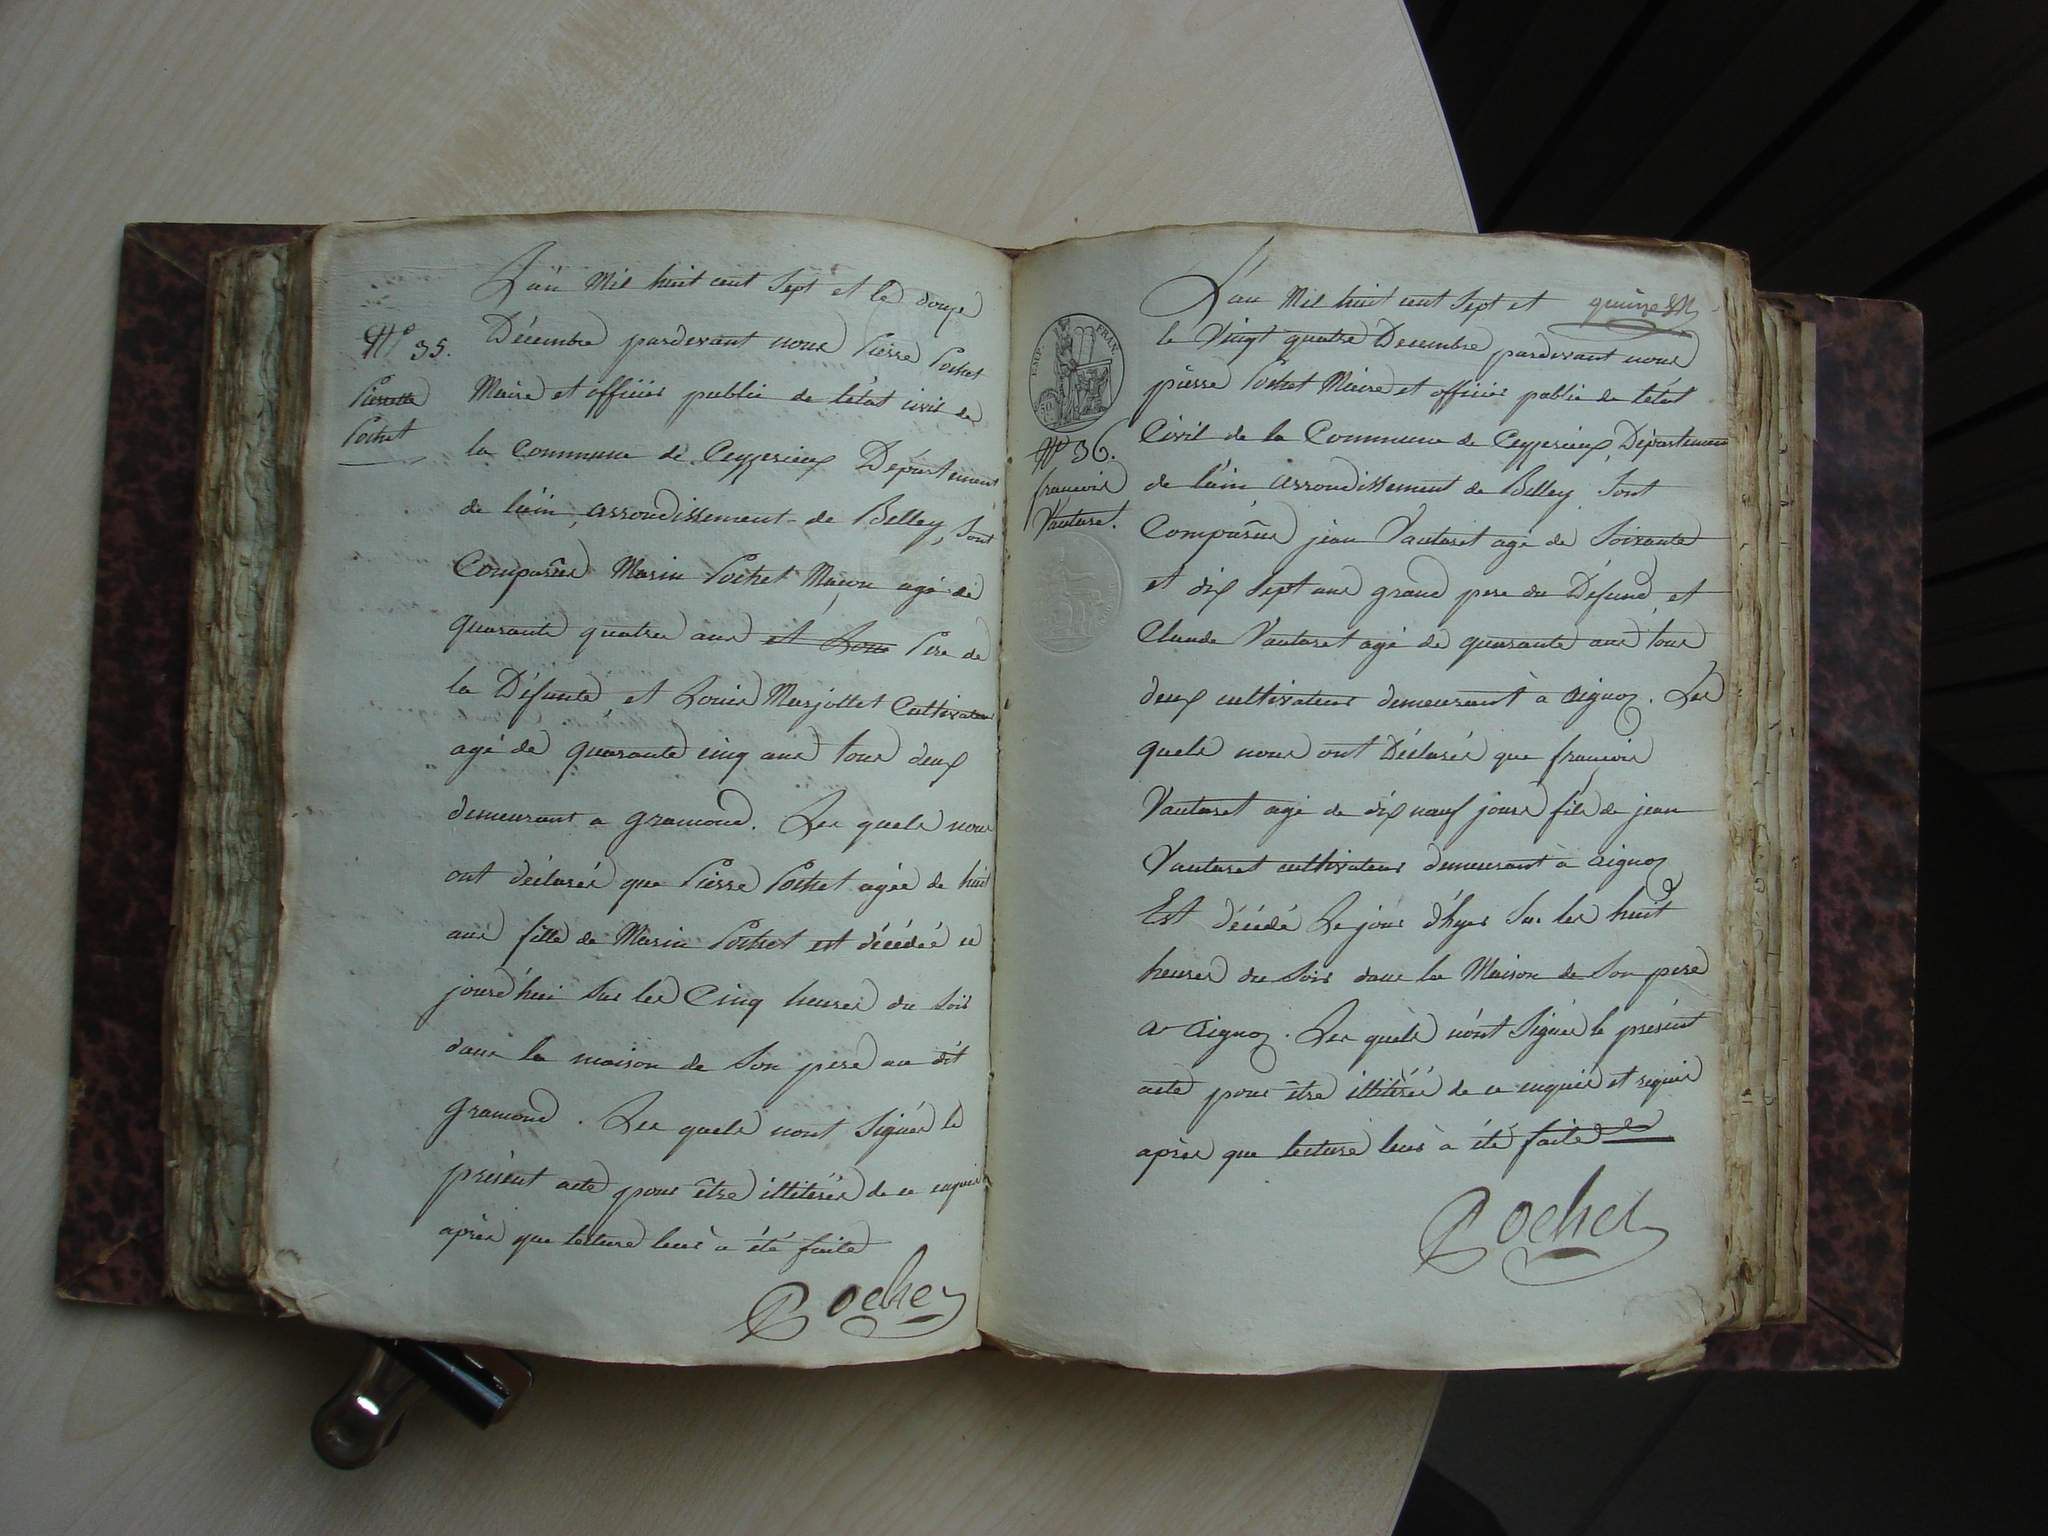 L'an Mil huit cent Sept et le douze
N° 35.
Décembre pardevant nous Pierre Pochet
Pierrette
Maire et officier public de l'état civil de
Pochet
la Commune de Ceyzerieux Département
de l'ain, arrondissement de Belley, Sont
Comparus Marin Pochet Maçon agé de
quarante quatre ans et Loui Pere de
la Défunte, et Louis Marjollet Cultivateur
agé de quarante cinq ans tous deux
demeurant a gramond. Les quels nous
ont déclarés que Pierre Pochet agée de huit
ans fille de Marin Pochet est décédée ce
jourd'hui Sur les Cinq heures du Soir
dans la maison de Son pere au dit
gramond. Les quels nont Signés le
présent acte pour être illiterés de ce enquis
après que lecture leur à été faite
Pochet
L'an Mil huit cent Sept et quinze
le Vingt quatre Décembre pardevant nous
pierre Pochet Maire et officier public de l'état
EMP. FRAN.
Civil de la Commune de Ceyzerieux, Département
N° 36.
de l'ain arrondissement de Belley Sont
francois
Vautaret.
Comparus jean Vautaret agé de Soixante
et dix Sept ans grand pere du Défund, et
Claude Vautaret agé de quarante ans tous
deux cultivateurs demeurant à aignoz. Les
quels nous ont Déclarés que françois
Vautaret agé de dix neuf jours fils de jean
Vautaret cultivateur demeurant à aignoz
Est décédé Le jour d'hyer Sur les huit
heures du Soir dans la Maison de Son pere
a aignoz. Les quels n'ont Signés le présent
acte pour être illitérés de ce enquis et requis
après que lecture leur à été faite
Pochet